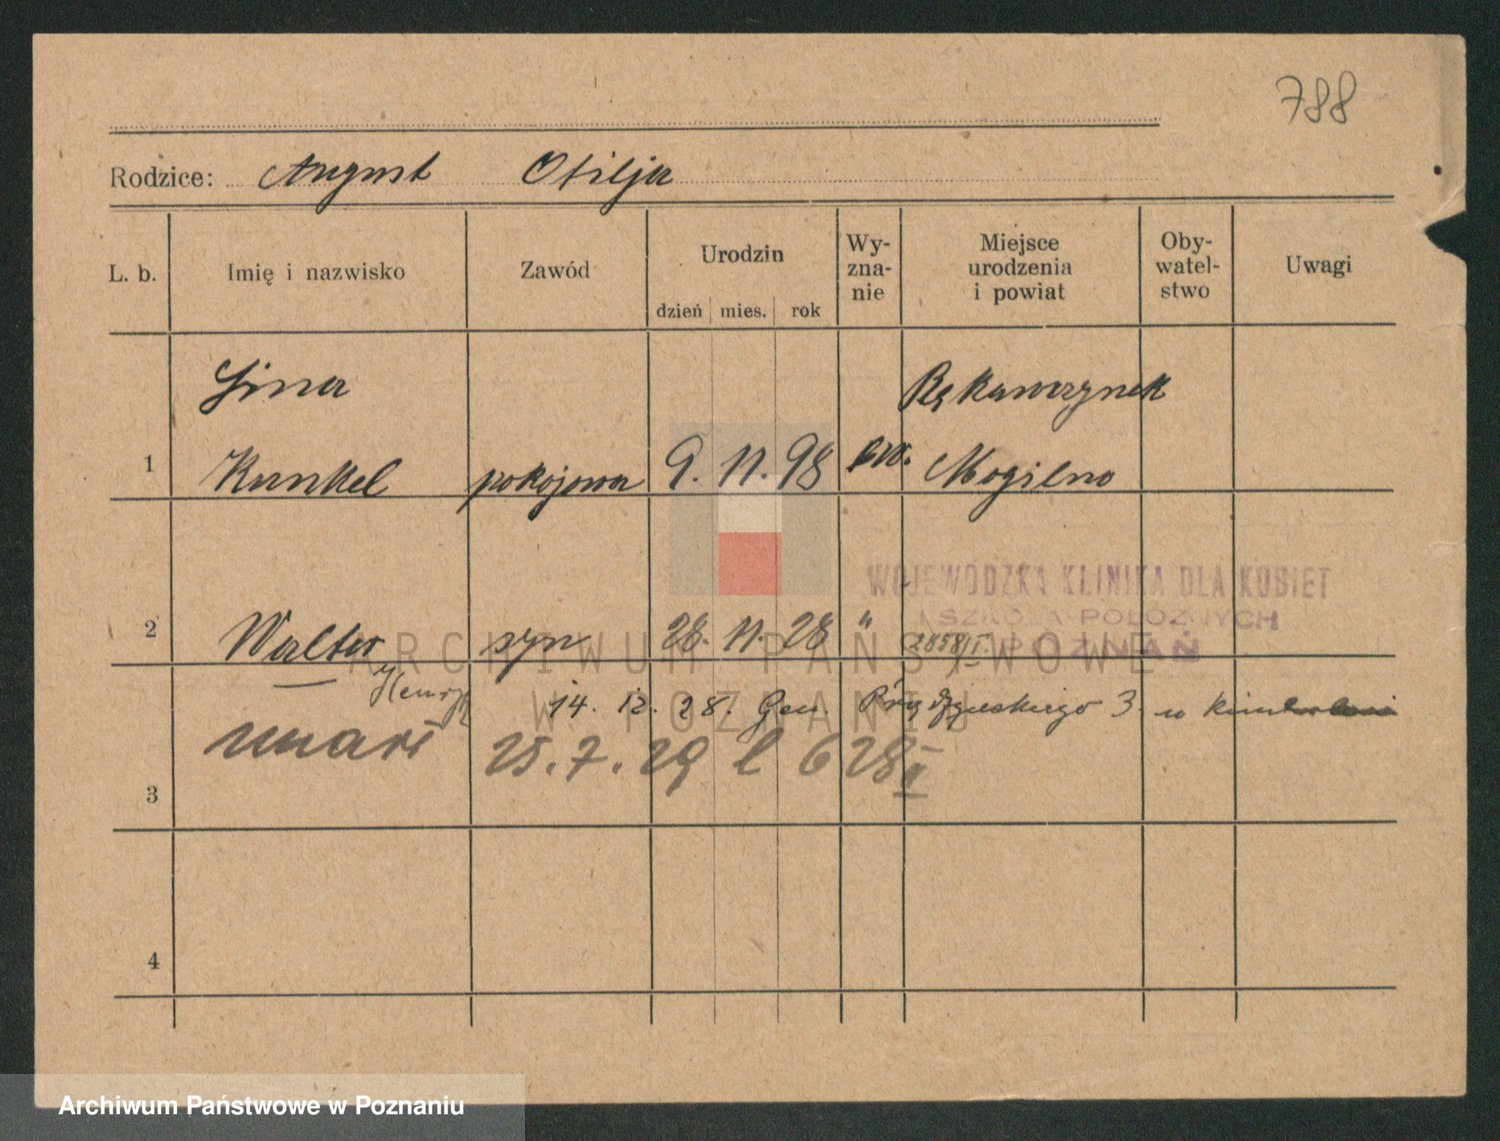 788
Rodzice: August Otilja
L. b. Imię i nazwisko Zawód Urodzin dzień mies. rok Wy-zna-nie Miejsce urodzenia i powiat Oby-watel-stwo Uwagi
Lina Rękawczynek
1 Kunkel pokojowa 9. 11. 98 ew. Mogilno
WOJEWÓDZKA KLINIKA DLA KOBIET
I SZKOŁA POŁOŻNYCH
2 Walter syn 28. 11. 28 " 2858/I. POZNAŃ
Henryk
ARCHIWUM PAŃSTWOWE
W POZNANIU
14. 12. 28. Gen. Prądzyńskiego 3. u
zmarł 25. 7. 29 l 628 II
3
4
Archiwum Państwowe w Poznaniu